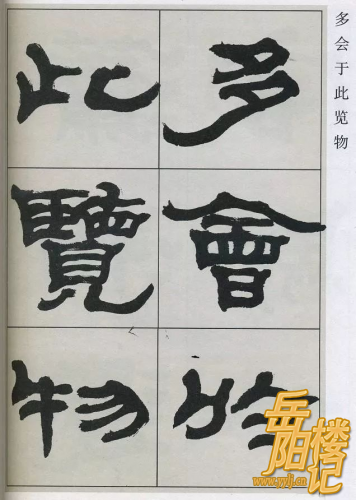 多会于此览物
多會於
此覽物
岳阳楼记
www.yylj.cn